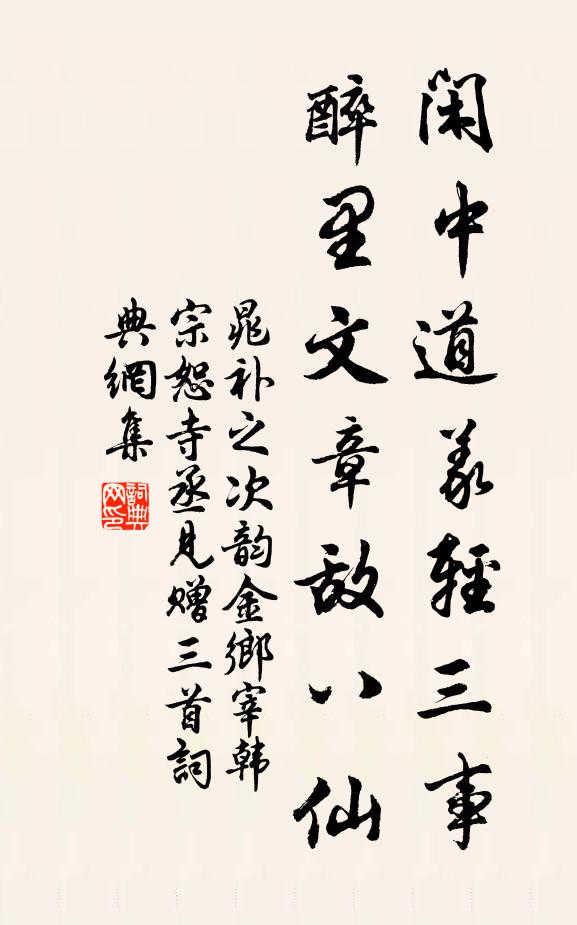 闲中道义轻三事
醉里文章敌八仙
晁补之次韵金鄉宰韩
宗恕寺丞见赠三首詞
典網集
詞典网印